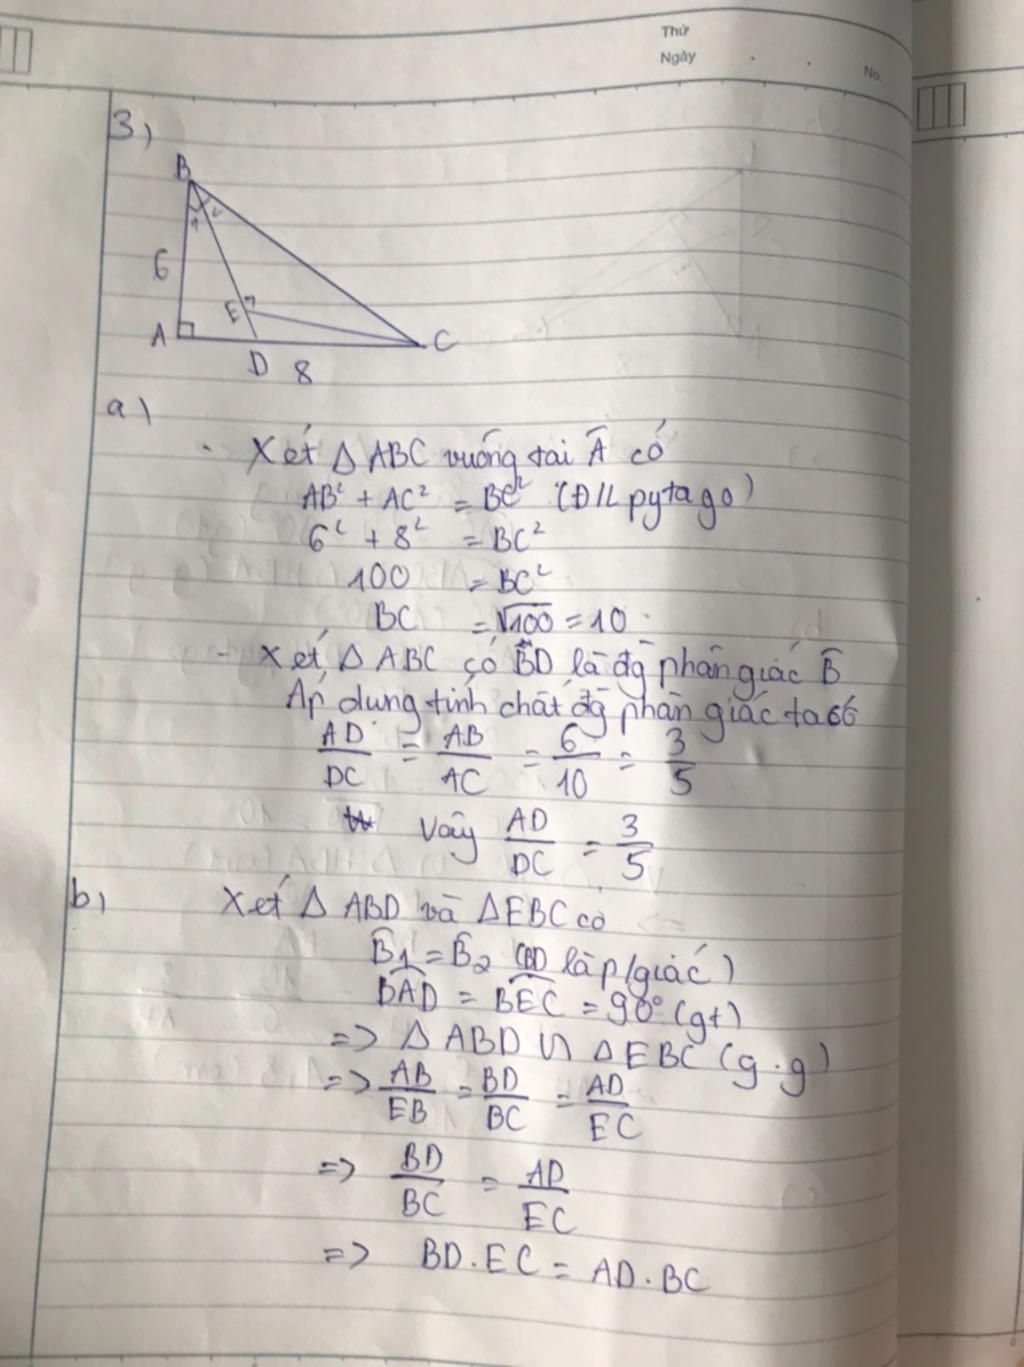 Thứ
Ngày
No.
3)
B
1 2
6
E
A
D 8
C
a)
. Xét Δ ABC vuống tai Â có
AB² + AC² = BC² (Đ/L pytago)
6² + 8² = BC²
100 = BC²
BC = √100 = 10
- Xét Δ ABC có BD là đg phân giác B̂
Áp dung tính chất đg phân giác ta có
AD/DC = AB/AC = 6/10 = 3/5
Vây AD/DC = 3/5
b) Xét Δ ABD và ΔEBC co
B̂1 = B̂2 (BD là p/giác)
BAD = BEC = 90° (gt)
=> Δ ABD ᔕ ΔEBC (g.g)
=> AB/EB = BD/BC = AD/EC
=> BD/BC = AD/EC
=> BD.EC = AD.BC